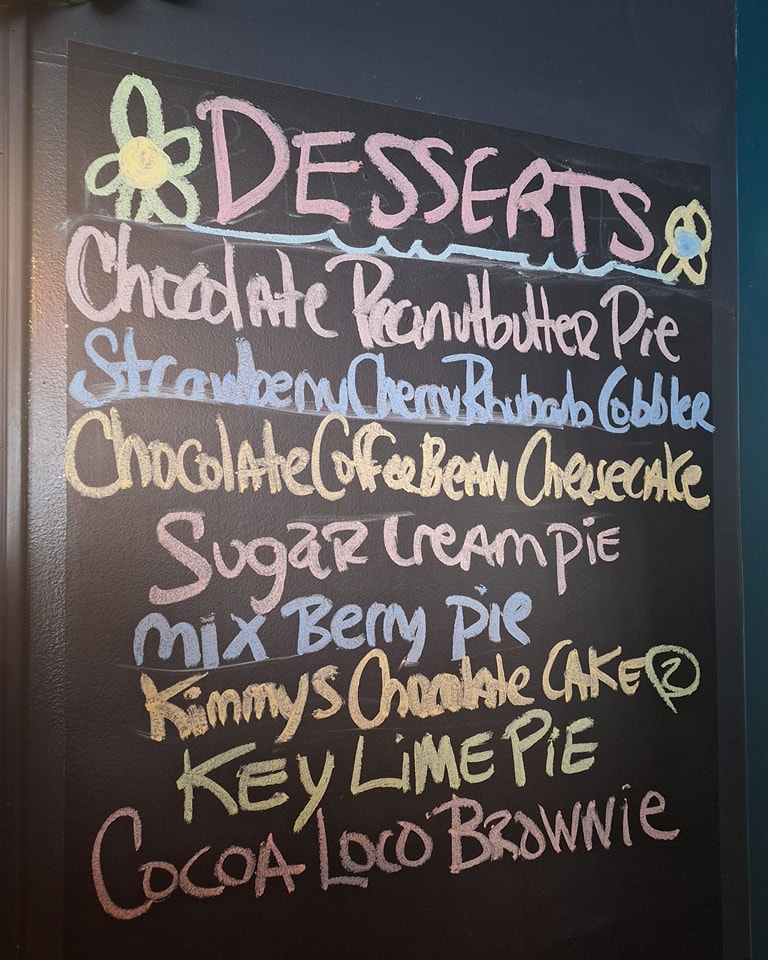 DESSERTS
Chocolate Peanutbutter Pie
Strawberry Cherry Rhubarb Cobbler
Chocolate Coffee Bean Cheesecake
Sugar Cream pie
mix Berry pie
Kimmys Chocolate CAKE 2
KEY LiME PiE
COCOA LOCO BROWNiE